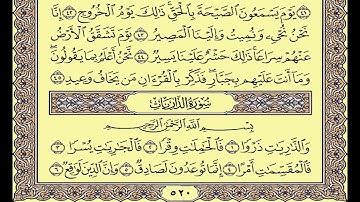 ٤١ يَوْمَ يَسْمَعُونَ الصَّيْحَةَ بِالْحَقِّ ذَٰلِكَ يَوْمُ الْخُرُوجِ ٤٢ إِنَّا
نَحْنُ نُحْيِي وَنُمِيتُ وَإِلَيْنَا الْمَصِيرُ ٤٣ يَوْمَ تَشَقَّقُ الْأَرْضُ
عَنْهُمْ سِرَاعًا ذَٰلِكَ حَشْرٌ عَلَيْنَا يَسِيرٌ ٤٤ نَحْنُ أَعْلَمُ بِمَا يَقُولُونَ
وَمَا أَنتَ عَلَيْهِم بِجَبَّارٍ فَذَكِّرْ بِالْقُرْآنِ مَن يَخَافُ وَعِيدِ
سُورَةُ الذَّارِيَاتِ
بِسْمِ اللَّهِ الرَّحْمَٰنِ الرَّحِيمِ
وَالذَّارِيَاتِ ذَرْوًا ١ فَالْحَامِلَاتِ وِقْرًا ٢ فَالْجَارِيَاتِ يُسْرًا ٣
فَالْمُقَسِّمَاتِ أَمْرًا ٤ إِنَّمَا تُوعَدُونَ لَصَادِقٌ ٥ وَإِنَّ الدِّينَ لَوَاقِعٌ ٦
٥٢٠